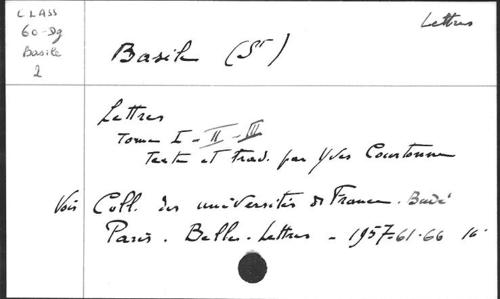 Lettres
CLASS
60-Dg
Basile
2
Basile (St)
Lettres
Tome I - II - III
Texte et trad. par Yves Courtonne
Voir Coll. des universités de France. Budé
Paris. Belles-Lettres - 1957-61-66